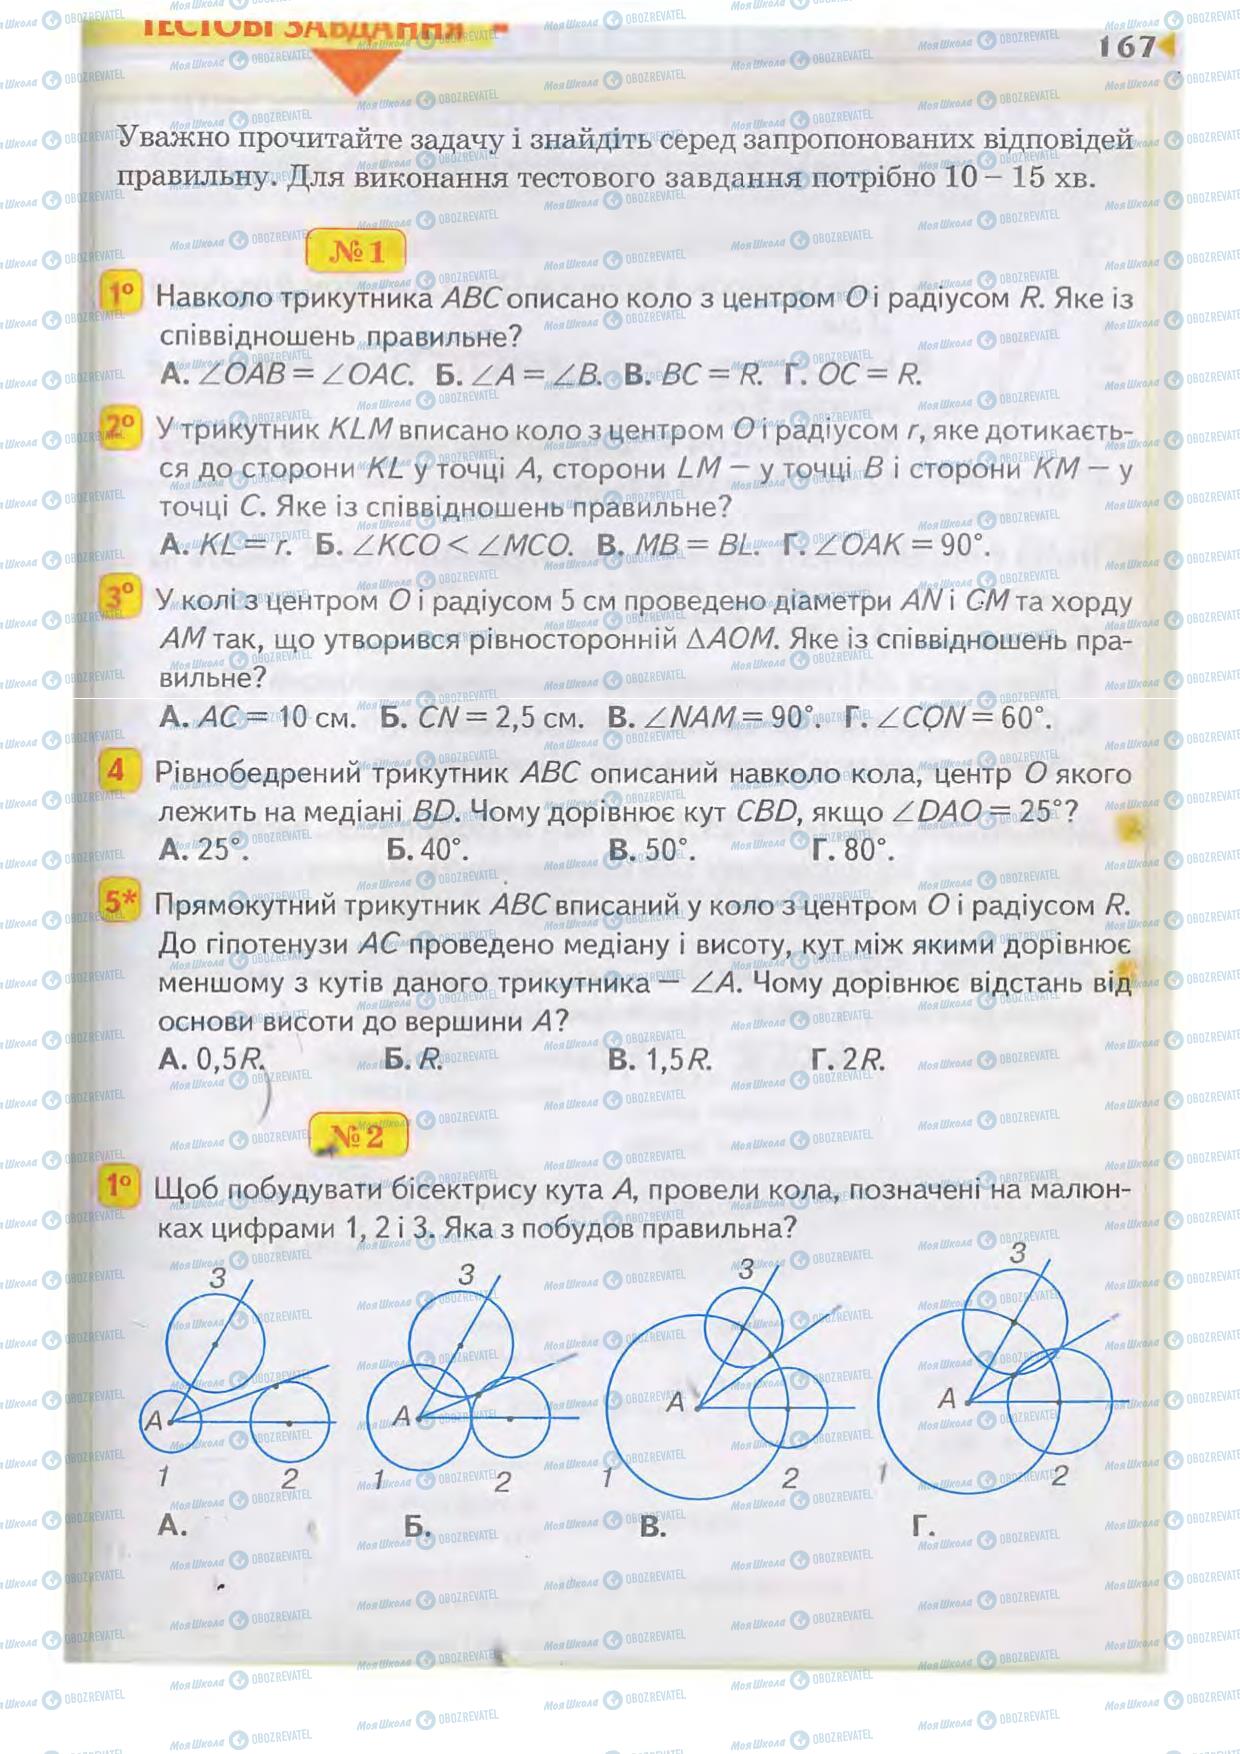 ТЕСТОВІ ЗАВДАННЯ
167
Уважно прочитайте задачу і знайдіть серед запропонованих відповідей
правильну. Для виконання тестового завдання потрібно 10 – 15 хв.
№ 1
1° Навколо трикутника ABC описано коло з центром O і радіусом R. Яке із
співвідношень правильне?
А. ∠OAB = ∠OAC. Б. ∠A = ∠B. В. BC = R. Г. OC = R.
2° У трикутник KLM вписано коло з центром O і радіусом r, яке дотикаєть-
ся до сторони KL у точці A, сторони LM – у точці B і сторони KM – у
точці C. Яке із співвідношень правильне?
А. KL = r. Б. ∠KCO < ∠MCO. В. MB = BL. Г. ∠OAK = 90°.
3° У колі з центром O і радіусом 5 см проведено діаметри AN і CM та хорду
AM так, що утворився рівносторонній △AOM. Яке із співвідношень пра-
вильне?
А. AC = 10 см. Б. CN = 2,5 см. В. ∠NAM = 90°. Г. ∠CON = 60°.
4 Рівнобедрений трикутник ABC описаний навколо кола, центр O якого
лежить на медіані BD. Чому дорівнює кут CBD, якщо ∠DAO = 25°?
А. 25°. Б. 40°. В. 50°. Г. 80°.
5* Прямокутний трикутник ABC вписаний у коло з центром O і радіусом R.
До гіпотенузи AC проведено медіану і висоту, кут між якими дорівнює
меншому з кутів даного трикутника – ∠A. Чому дорівнює відстань від
основи висоти до вершини A?
А. 0,5R. Б. R. В. 1,5R. Г. 2R.
№ 2
1° Щоб побудувати бісектрису кута A, провели кола, позначені на малюн-
ках цифрами 1, 2 і 3. Яка з побудов правильна?
3 3 3 3
A A A A
1 2 1 2 1 2 1 2
А. Б. В. Г.
МояШкола OBOZREVATEL